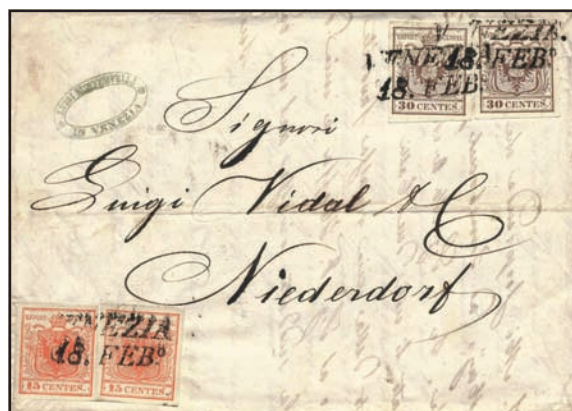 VENEZIA.
18. FEBº
VENEZIA
18. FEBº
30 CENTES.
30 CENTES.
IN VENEZIA
Signori
Luigi Vidal & C
Niederdorf
VENEZIA
18. FEBº
15 CENTES.
15 CENTES.